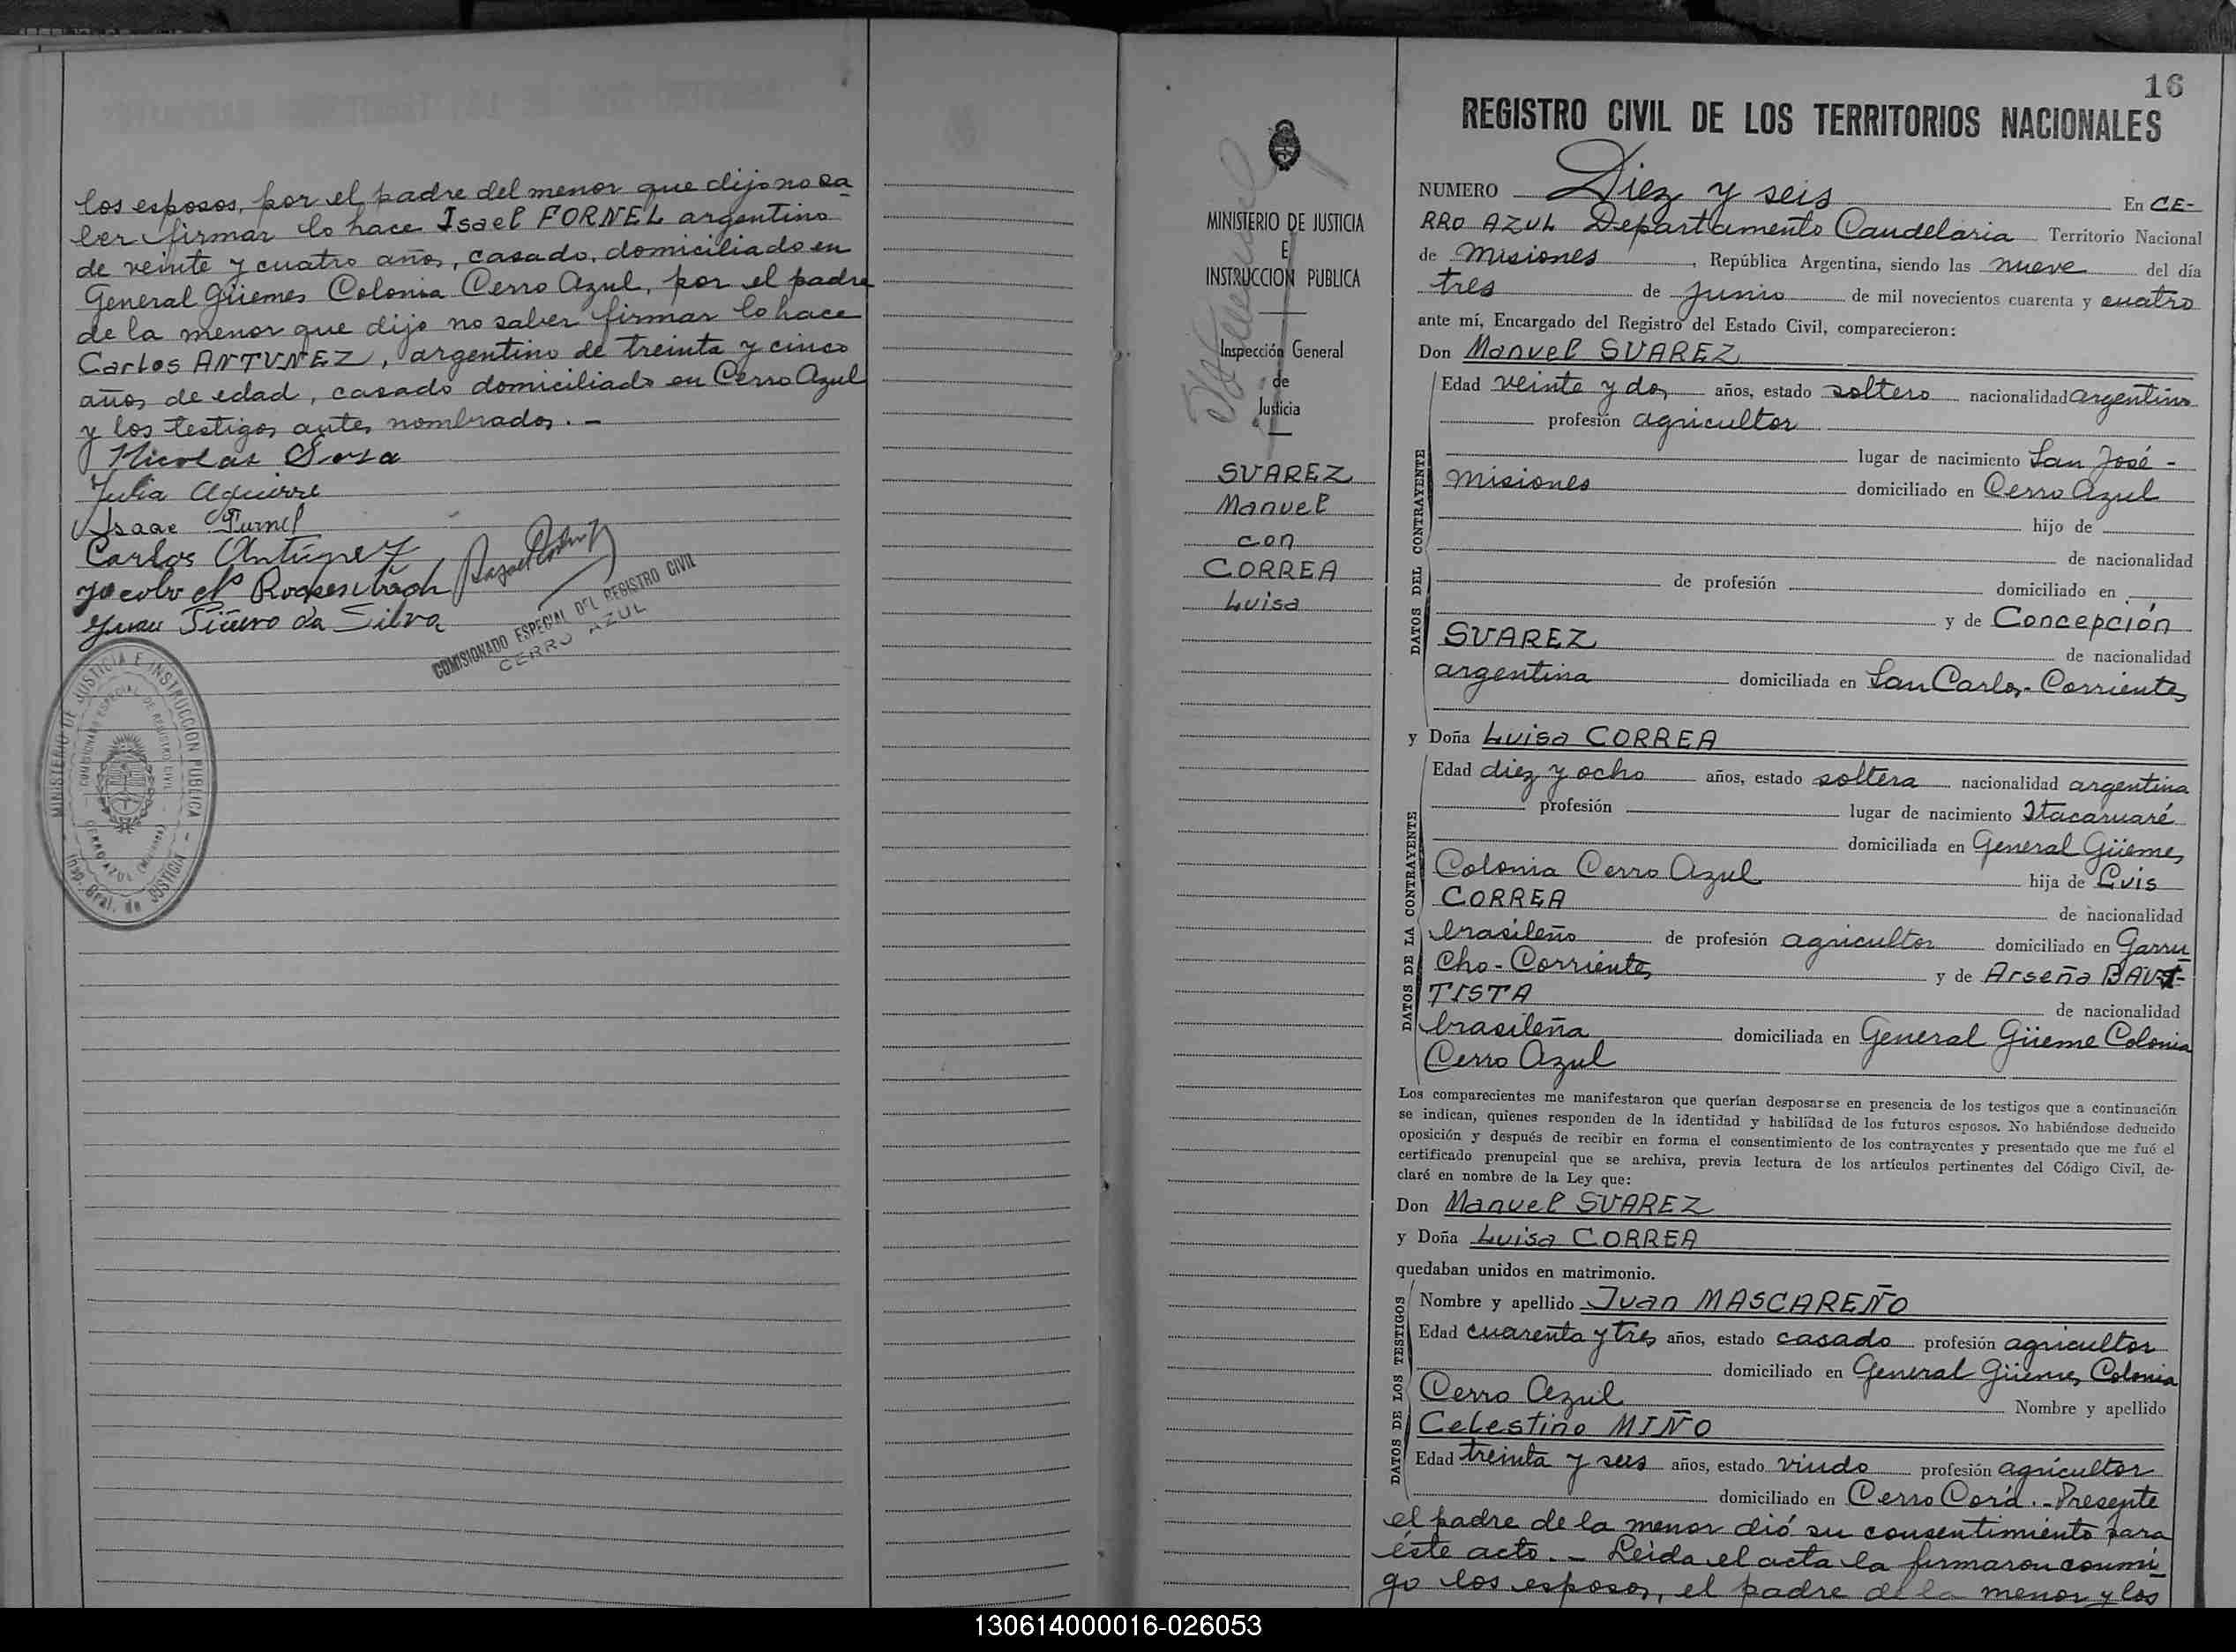 los esposos, por el padre del menor que dijo no sa
ber firmar lo hace Isael FORNEL argentino
de veinte y cuatro años, casado, domiciliado en
General Güemes Colonia Cerro Azul, por el padre
de la menor que dijo no saber firmar lo hace
Carlos ANTUNEZ, argentino de treinta y cinco
años de edad, casado domiciliado en Cerro Azul
y los testigos antes nombrados. -
Nicolas Sosa
Julia Aguirre
Isaac Furnel
Carlos Antúnez
Juan Piñero da Silva
COMISIONADO ESPECIAL DEL REGISTRO CIVIL
CERRO AZUL
MINISTERIO DE JUSTICIA E INSTRUCCION PUBLICA
Insp. Gral. de JUSTICIA
MINISTERIO DE JUSTICIA
E
INSTRUCCION PUBLICA
Inspección General
de
Justicia
SUAREZ
Manuel
con
CORREA
Luisa
16
REGISTRO CIVIL DE LOS TERRITORIOS NACIONALES
NUMERO Diez y seis En CE-
RRO AZUL Departamento Candelaria Territorio Nacional
de Misiones, República Argentina, siendo las nueve del día
tres de junio de mil novecientos cuarenta y cuatro
ante mí, Encargado del Registro del Estado Civil, comparecieron:
Don Manuel SUAREZ
DATOS DEL CONTRAYENTE
Edad veinte y dos años, estado soltero nacionalidad argentino
profesión agricultor
lugar de nacimiento San José -
Misiones domiciliado en Cerro Azul
hijo de
de nacionalidad
de profesión domiciliado en
y de Concepción
SUAREZ de nacionalidad
argentina domiciliada en San Carlos - Corrientes
y Doña Luisa CORREA
DATOS DE LA CONTRAYENTE
Edad diez y ocho años, estado soltera nacionalidad argentina
profesión lugar de nacimiento Itacaruaré
domiciliada en General Güemes
Colonia Cerro Azul hija de Luis
CORREA de nacionalidad
brasileño de profesión agricultor domiciliado en Garru
cho - Corrientes y de Arseña BAU-
TISTA de nacionalidad
brasileña domiciliada en General Güeme Colonia
Cerro Azul
Los comparecientes me manifestaron que querían desposarse en presencia de los testigos que a continuación
se indican, quienes responden de la identidad y habilidad de los futuros esposos. No habiéndose deducido
oposición y después de recibir en forma el consentimiento de los contrayentes y presentado que me fué el
certificado prenupcial que se archiva, previa lectura de los artículos pertinentes del Código Civil, de-
claré en nombre de la Ley que:
Don Manuel SUAREZ
y Doña Luisa CORREA
quedaban unidos en matrimonio.
DATOS DE LOS TESTIGOS
Nombre y apellido Juan MASCAREÑO
Edad cuarenta y tres años, estado casado profesión agricultor
domiciliado en General Güemes Colonia
Cerro Azul Nombre y apellido
Celestino MIÑO
Edad treinta y seis años, estado viudo profesión agricultor
domiciliado en Cerro Corá. - Presente
el padre de la menor dió su consentimiento para
éste acto. - Leida el acta la firmaron conmi
go los esposos, el padre de la menor y los
130614000016-026053